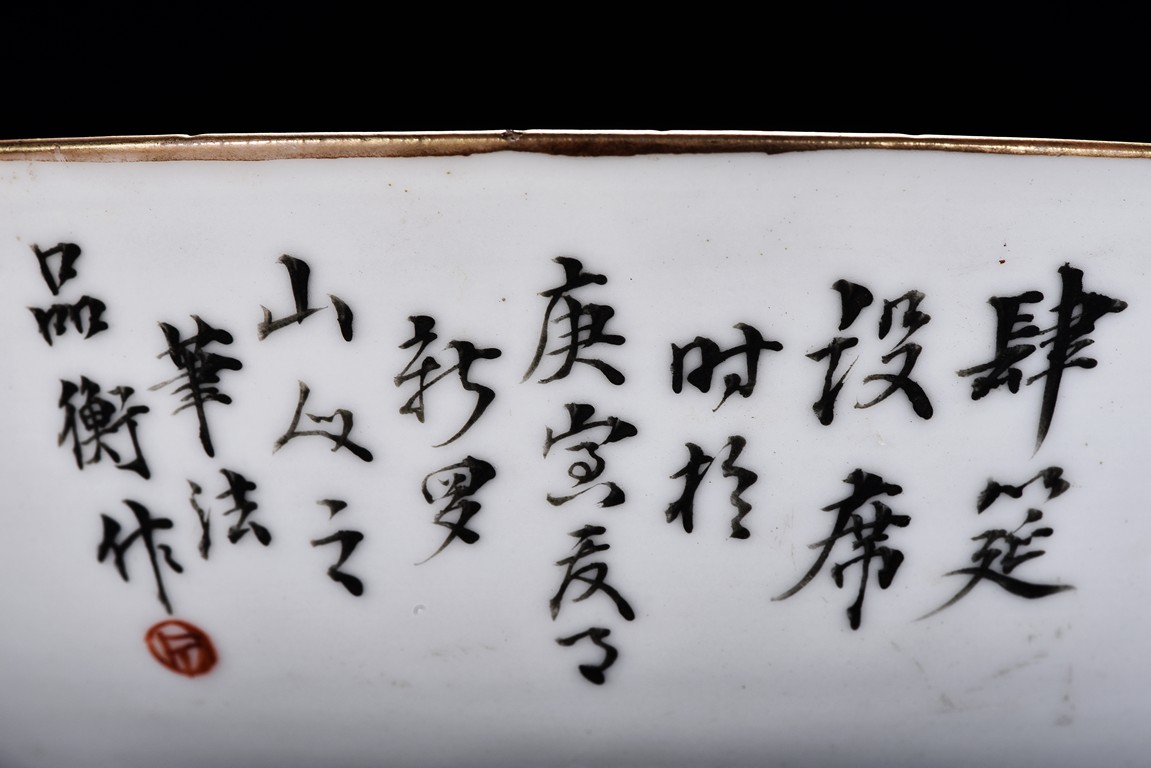 肆筵
設席
时於
庚寅夏月
新罗
山人之
筆法
品衡作